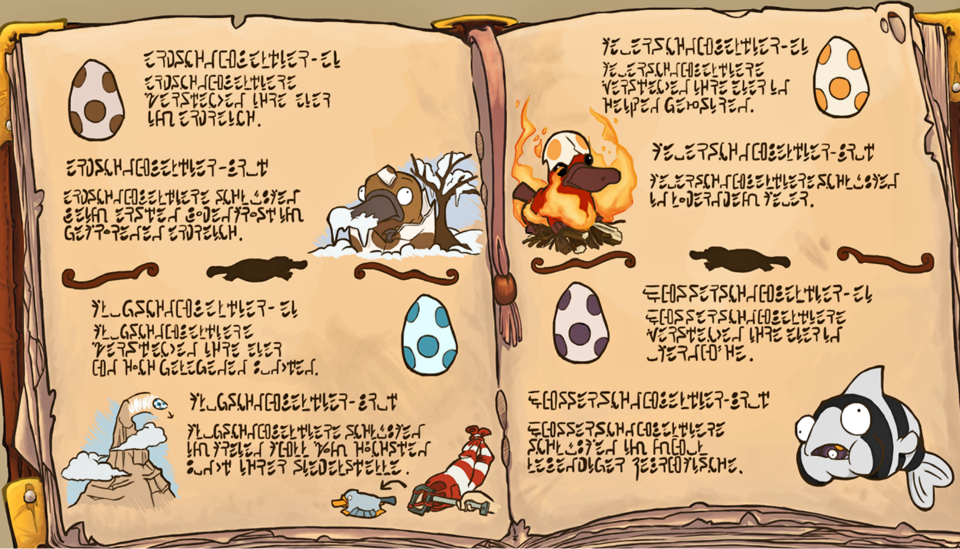 ERDSCHNABELTIER-EI
ERDSCHNABELTIERE
VERSTECKEN IHRE EIER
IM ERDREICH.
ERDSCHNABELTIER-BRUT
ERDSCHNABELTIERE SCHLÜPFEN
BEIM ERSTEN BODENFROST IM
GEFRORENEN ERDREICH.
FLUGSCHNABELTIER-EI
FLUGSCHNABELTIERE
VERSTECKEN IHRE EIER
AN HOCH GELEGENEN PUNKTEN.
FLUGSCHNABELTIER-BRUT
FLUGSCHNABELTIERE SCHLÜPFEN
IM FREIEN FALL VOM HÖCHSTEN
PUNKT IHRER SIEDELSTELLE.
FEUERSCHNABELTIER-EI
FEUERSCHNABELTIERE
VERSTECKEN IHRE EIER IN
HEIßEN GEYSIREN.
FEUERSCHNABELTIER-BRUT
FEUERSCHNABELTIERE SCHLÜPFEN
IN LODERNDEM FEUER.
WASSERSCHNABELTIER-EI
WASSERSCHNABELTIERE
VERSTECKEN IHRE EIER IN
UFERNÄHE.
WASSERSCHNABELTIER-BRUT
WASSERSCHNABELTIERE
SCHLÜPFEN IM MAUL
LEBENDIGER ZEBRAFISCHE.